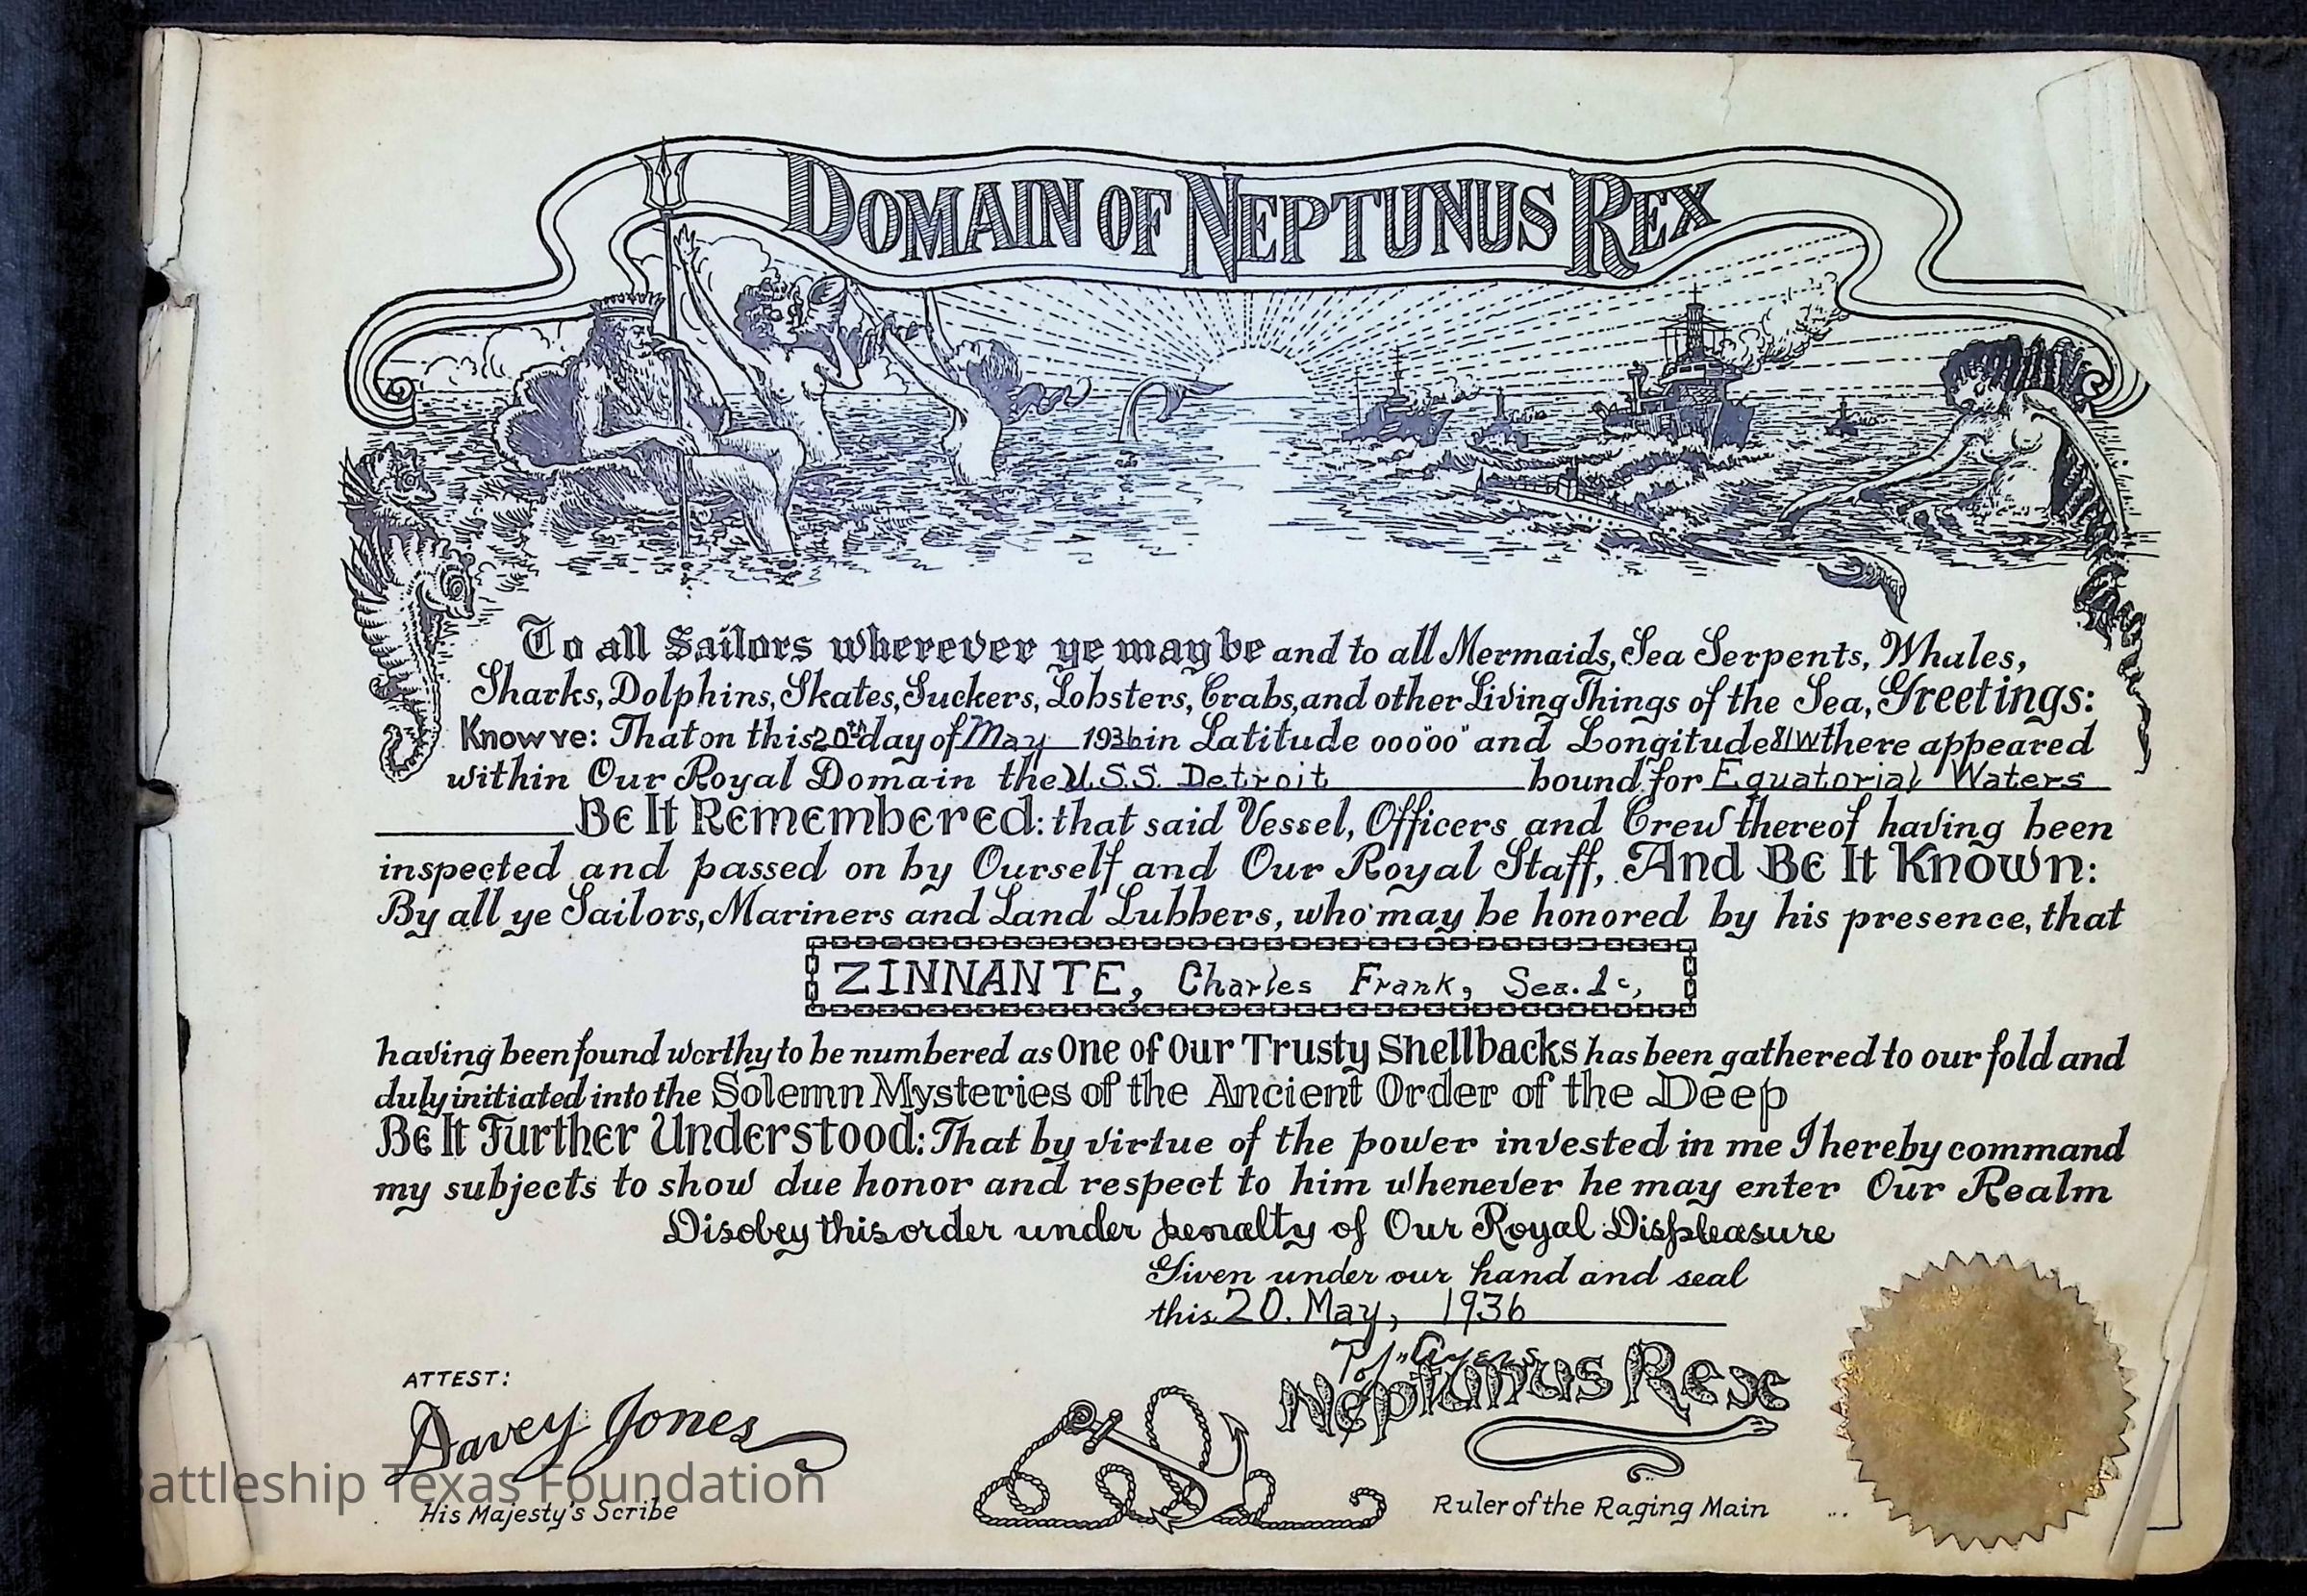 DOMAIN OF NEPTUNUS REX
To all Sailors wherever ye may be and to all Mermaids, Sea Serpents, Whales,
Sharks, Dolphins, Skates, Suckers, Lobsters, Crabs, and other Living Things of the Sea, Greetings:
Know ye: That on this 20th day of May 1936 in Latitude 00000 and Longitude 81W there appeared
within Our Royal Domain the U.S.S. Detroit bound for Equatorial Waters
Be It Remembered: that said Vessel, Officers and Crew thereof having been
inspected and passed on by Ourself and Our Royal Staff, And Be It Known:
By all ye Sailors, Mariners and Land Lubbers, who may be honored by his presence, that
ZINNANTE, Charles Frank, Sea. 1c,
having been found worthy to be numbered as One of Our Trusty Shellbacks has been gathered to our fold and
duly initiated into the Solemn Mysteries of the Ancient Order of the Deep
Be It Further Understood: That by virtue of the power invested in me I hereby command
my subjects to show due honor and respect to him whenever he may enter Our Realm
Disobey this order under penalty of Our Royal Displeasure
Given under our hand and seal
this 20. May, 1936
ATTEST:
Neptunus Rex
Davey Jones
His Majesty's Scribe
Ruler of the Raging Main
attleship Texas Foundation